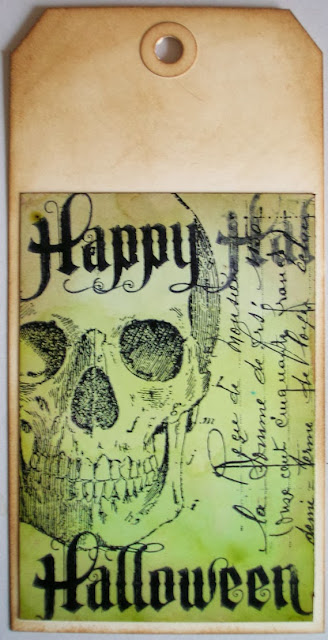 Happy Hal
Halloween
Reçu de Monsieur
la Somme de
cent cinquante francs
demi-terme de